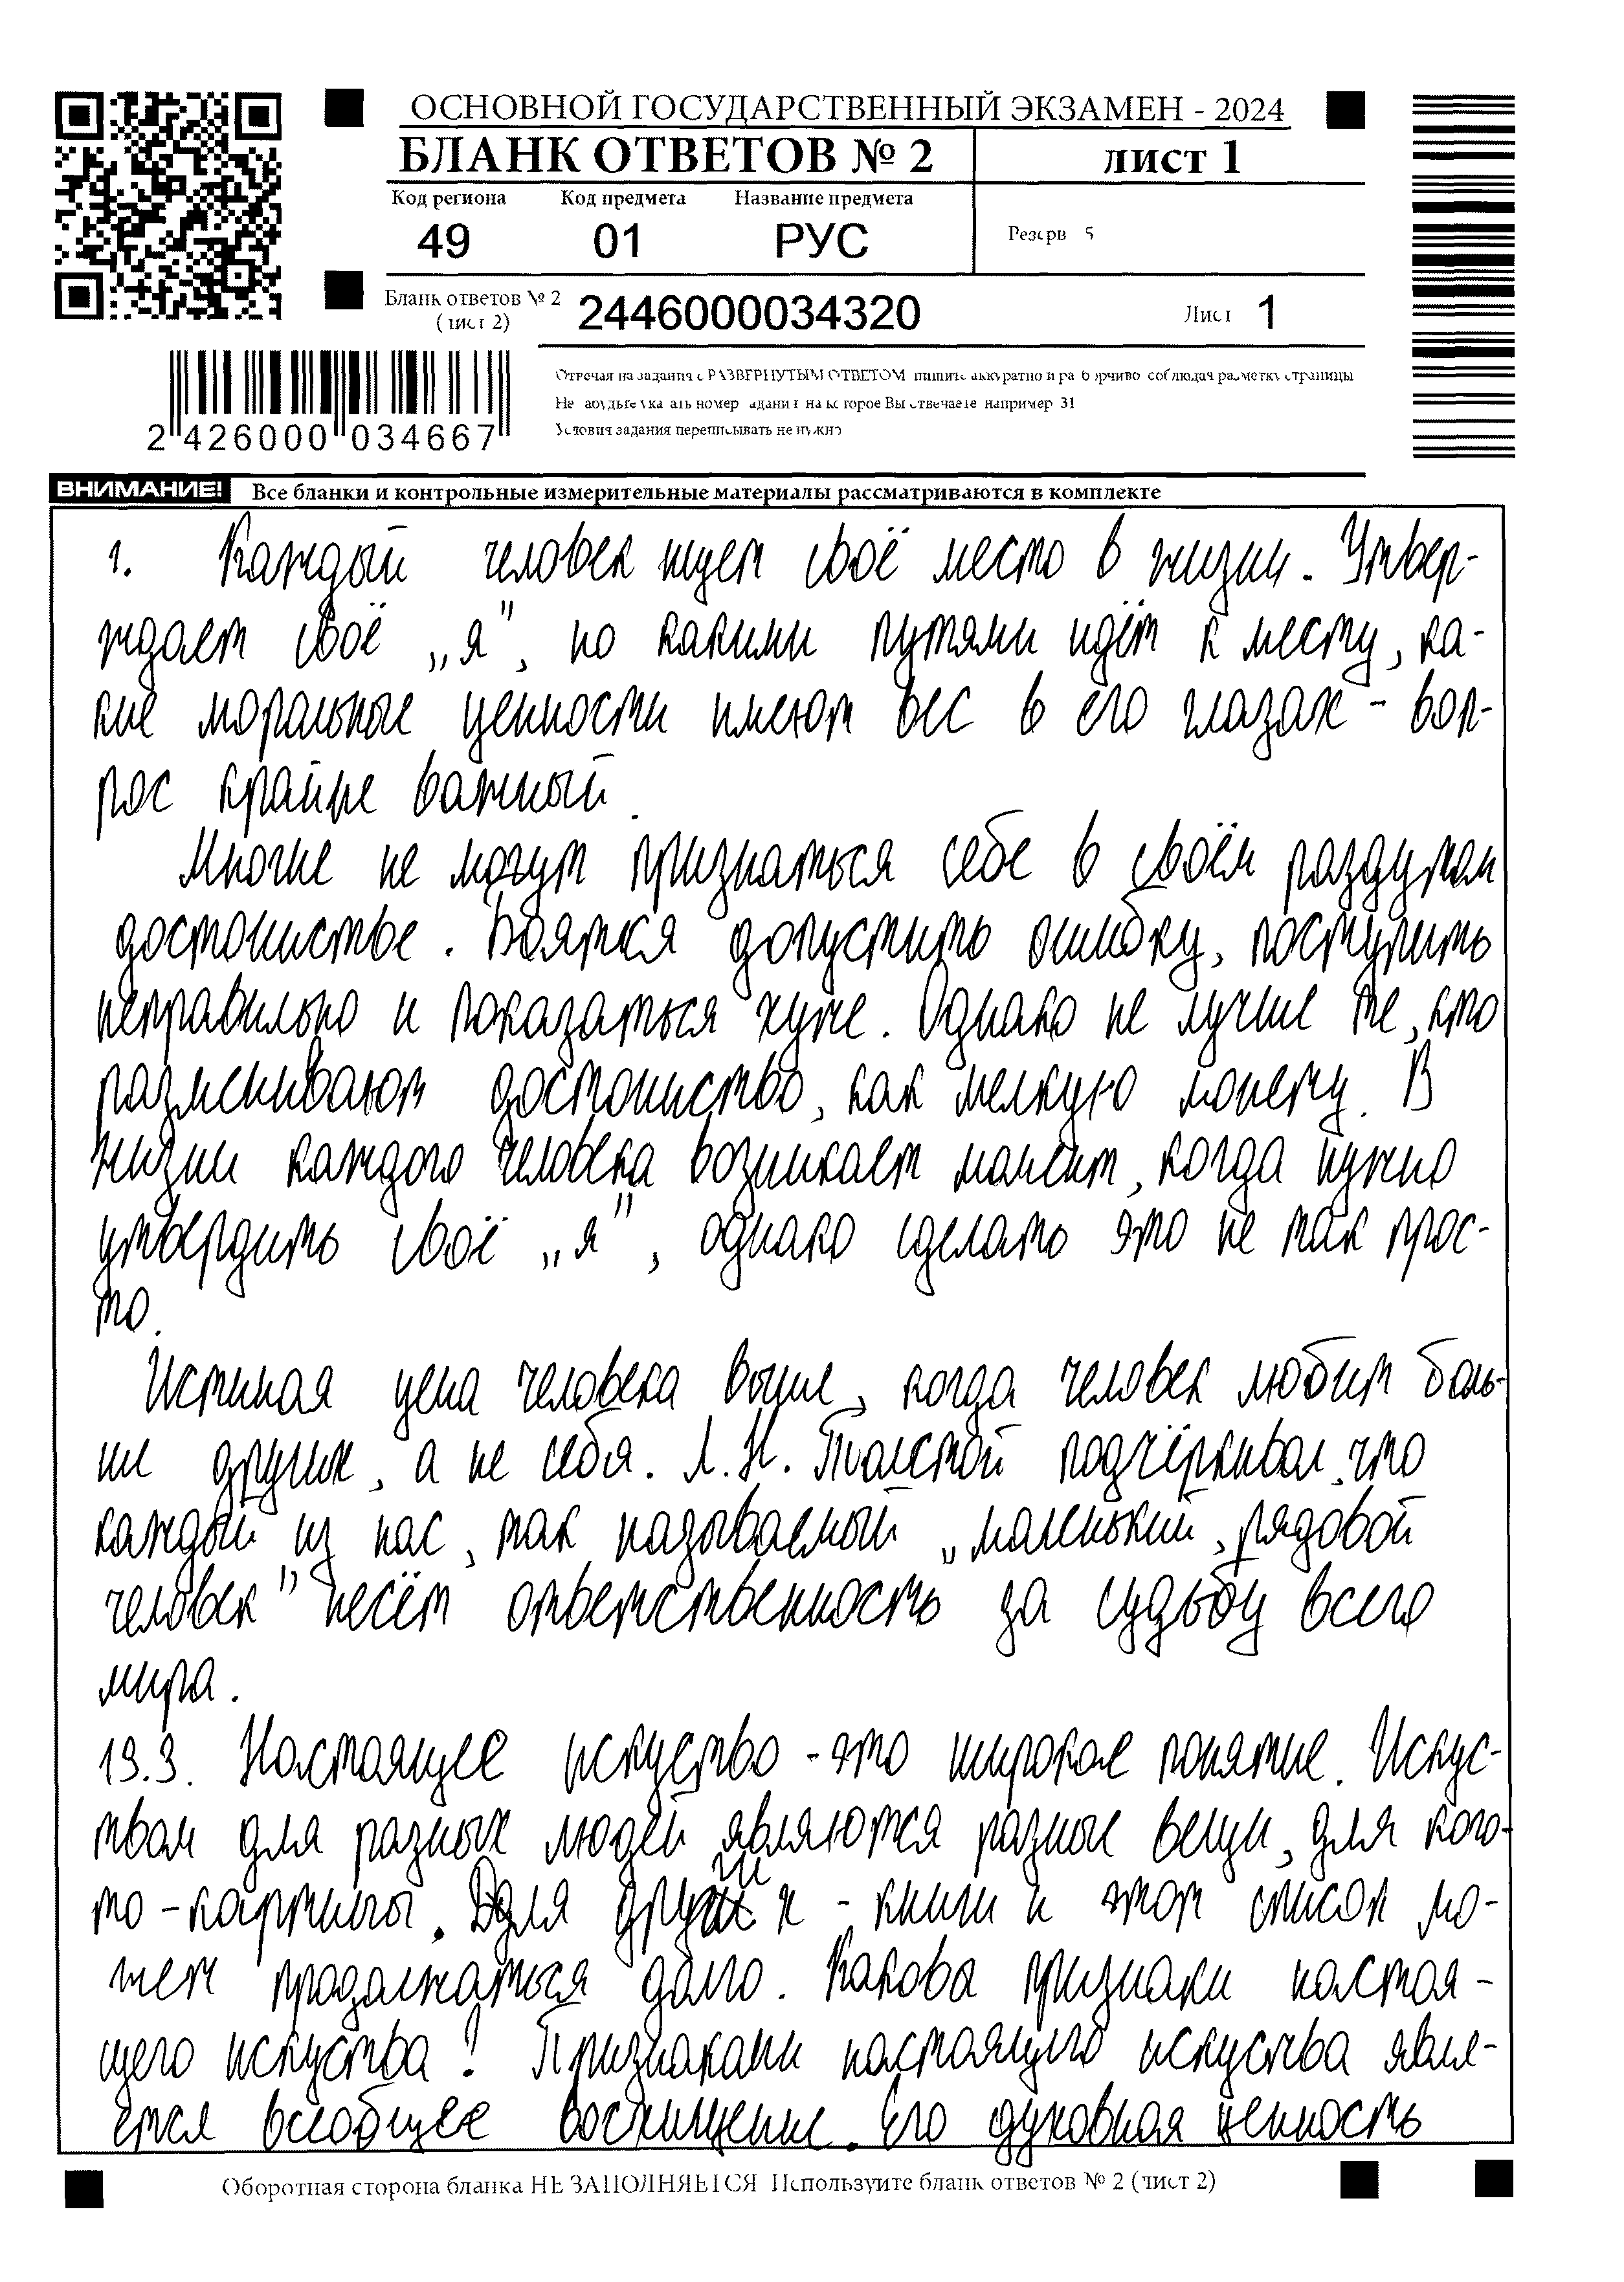 ОСНОВНОЙ ГОСУДАРСТВЕННЫЙ ЭКЗАМЕН - 2024
БЛАНК ОТВЕТОВ № 2
лист 1
Код региона Код предмета Название предмета
49 01 РУС
Резерв 5
Бланк ответов № 2
(лист 2)
2446000034320
Лист 1
2 426000 034667
Отвечая на задания с РАЗВЕРНУТЫМ ОТВЕТОМ пишите аккуратно и разборчиво соблюдая разметку страницы
Не забудьте указать номер задания на которое Вы отвечаете например 31
Условия задания переписывать не нужно
ВНИМАНИЕ! Все бланки и контрольные измерительные материалы рассматриваются в комплекте
1. Каждый человек ищет своё место в жизни. Утвер-
ждает своё „я", но какими путями идёт к месту, ка-
кие моральные ценности имеют вес в его глазах - воп-
рос крайне важный.
Многие не могут признаться себе в своём раздутом
достоинстве. Боятся допустить ошибку, поступить
неправильно и показаться хуже. Однако не лучше те, кто
разменивают достоинство, как мелкую монету. В
жизни каждого человека возникает момент, когда нужно
утвердить своё „я", однако сделать это не так прос-
то.
Истиная цена человека выше, когда человек любит боль-
ше других, а не себя. Л.Н. Толстой подчёркивал, что
каждый из нас, так называемый „маленький, рядовой
человек" несёт ответственность за судьбу всего
мира.
13.3. Настоящее искуство - это широкое понятие. Искус-
твом для разных людей являются разные вещи, для кого-
то - картины. Для других - книги и этот список мо-
жет продолжаться долго. Каковы признаки настоя-
щего искуства? Признаками настоящего искуства явля-
ется всеобщее восхищение. Его духовная ценность
Оборотная сторона бланка НЕ ЗАПОЛНЯЕТСЯ Используйте бланк ответов № 2 (лист 2)